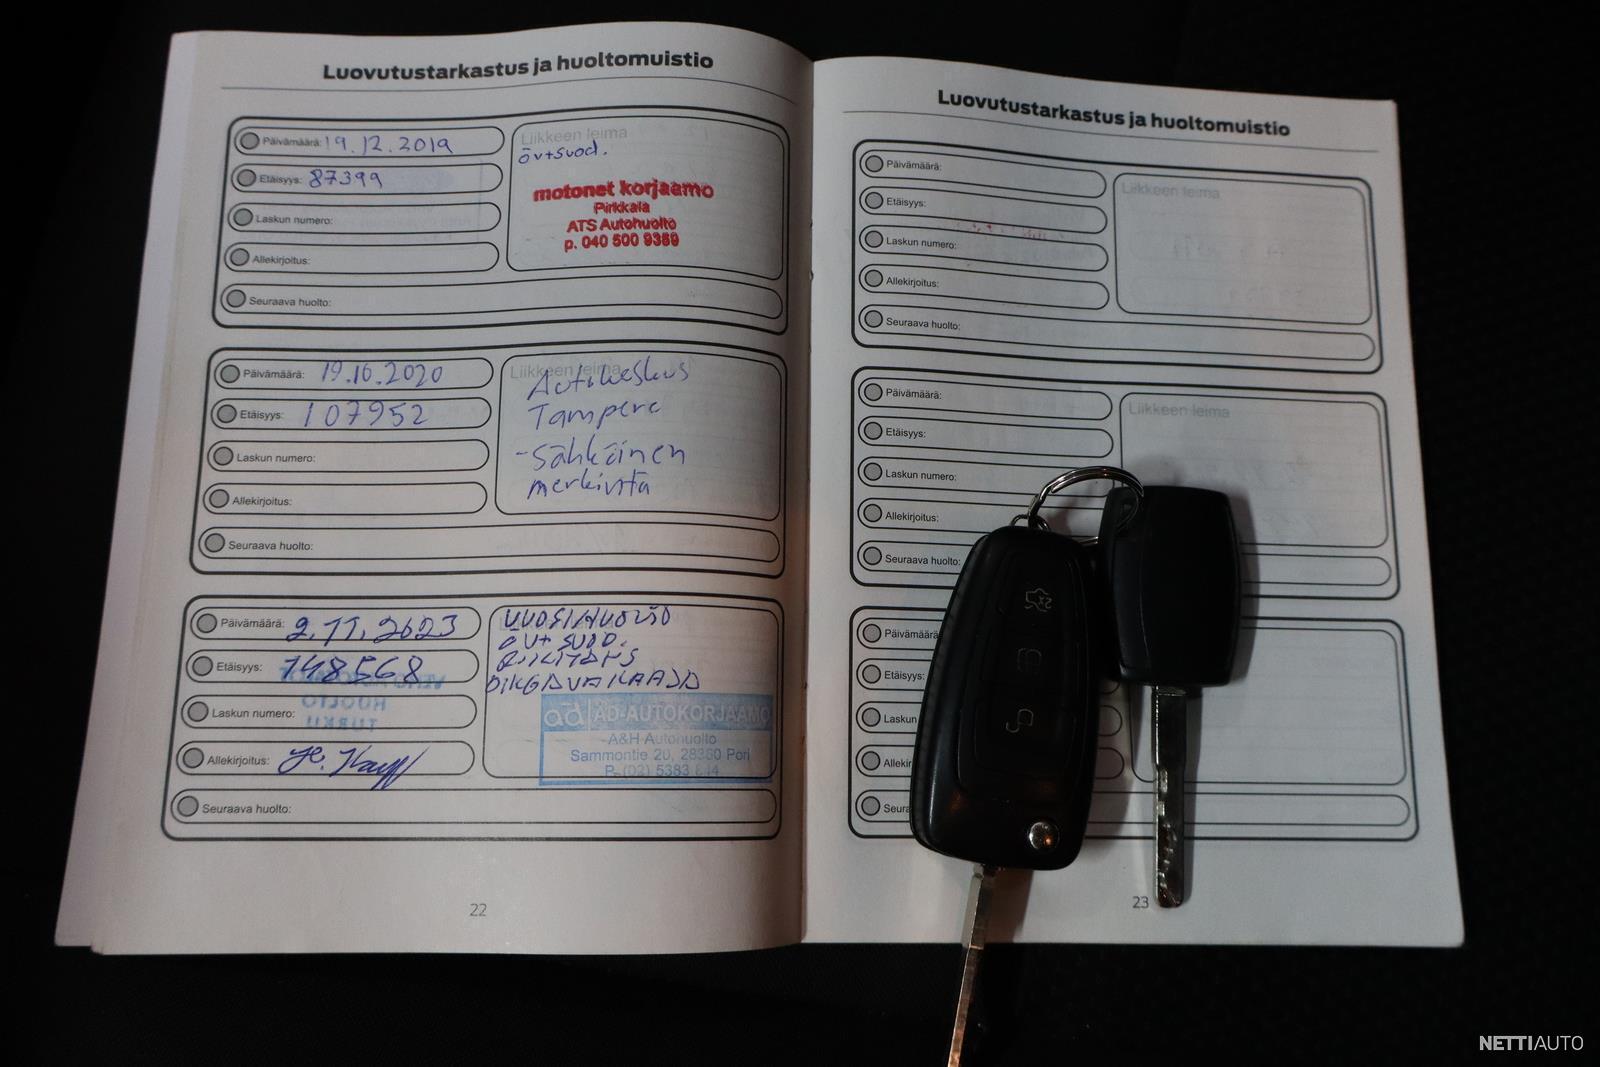 Luovutustarkastus ja huoltomuistio
Päivämäärä: 19.12.2019
Etäisyys: 87399
Laskun numero:
Allekirjoitus:
Seuraava huolto:
Liikkeen leima
öv+suod.
motonet korjaamo
Pirkkala
ATS Autohuolto
p. 040 500 9359
Päivämäärä: 19.10.2020
Etäisyys: 107952
Laskun numero:
Allekirjoitus:
Seuraava huolto:
Liikkeen leima
Autokeskus
Tampere
-Sähköinen
merkintä
Päivämäärä: 2.11.2023
Etäisyys: 148568
Laskun numero:
Allekirjoitus:
Seuraava huolto:
VUOSIHUOLTO
ÖV+ SUOD.
ad AD-AUTOKORJAAMO
A&H Autohuolto
Sammontie 20, 28360 Pori
P. (02) 5383 644
22
Luovutustarkastus ja huoltomuistio
Päivämäärä:
Etäisyys:
Laskun numero:
Allekirjoitus:
Seuraava huolto:
Liikkeen leima
Päivämäärä:
Etäisyys:
Laskun numero:
Allekirjoitus:
Seuraava huolto:
Liikkeen leima
Päivämäärä
Etäisyys:
Laskun
Allekir
Seura
23
NETTIAUTO